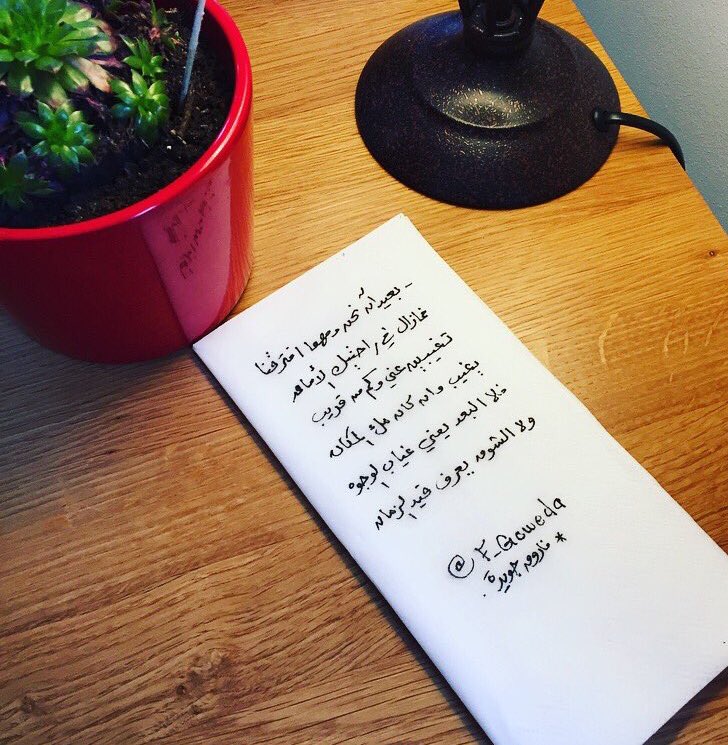 - بعيدان نحن ومهما افترقنا
فمازال في راحتيك الأمان
تغيبين عني وكم من قريب
يغيب وان كان ملء المكان
فلا البعد يعني غياب الوجوه
ولا الشوق يعرف قيد الزمان
@F_Goweda
* فاروق جويدة.